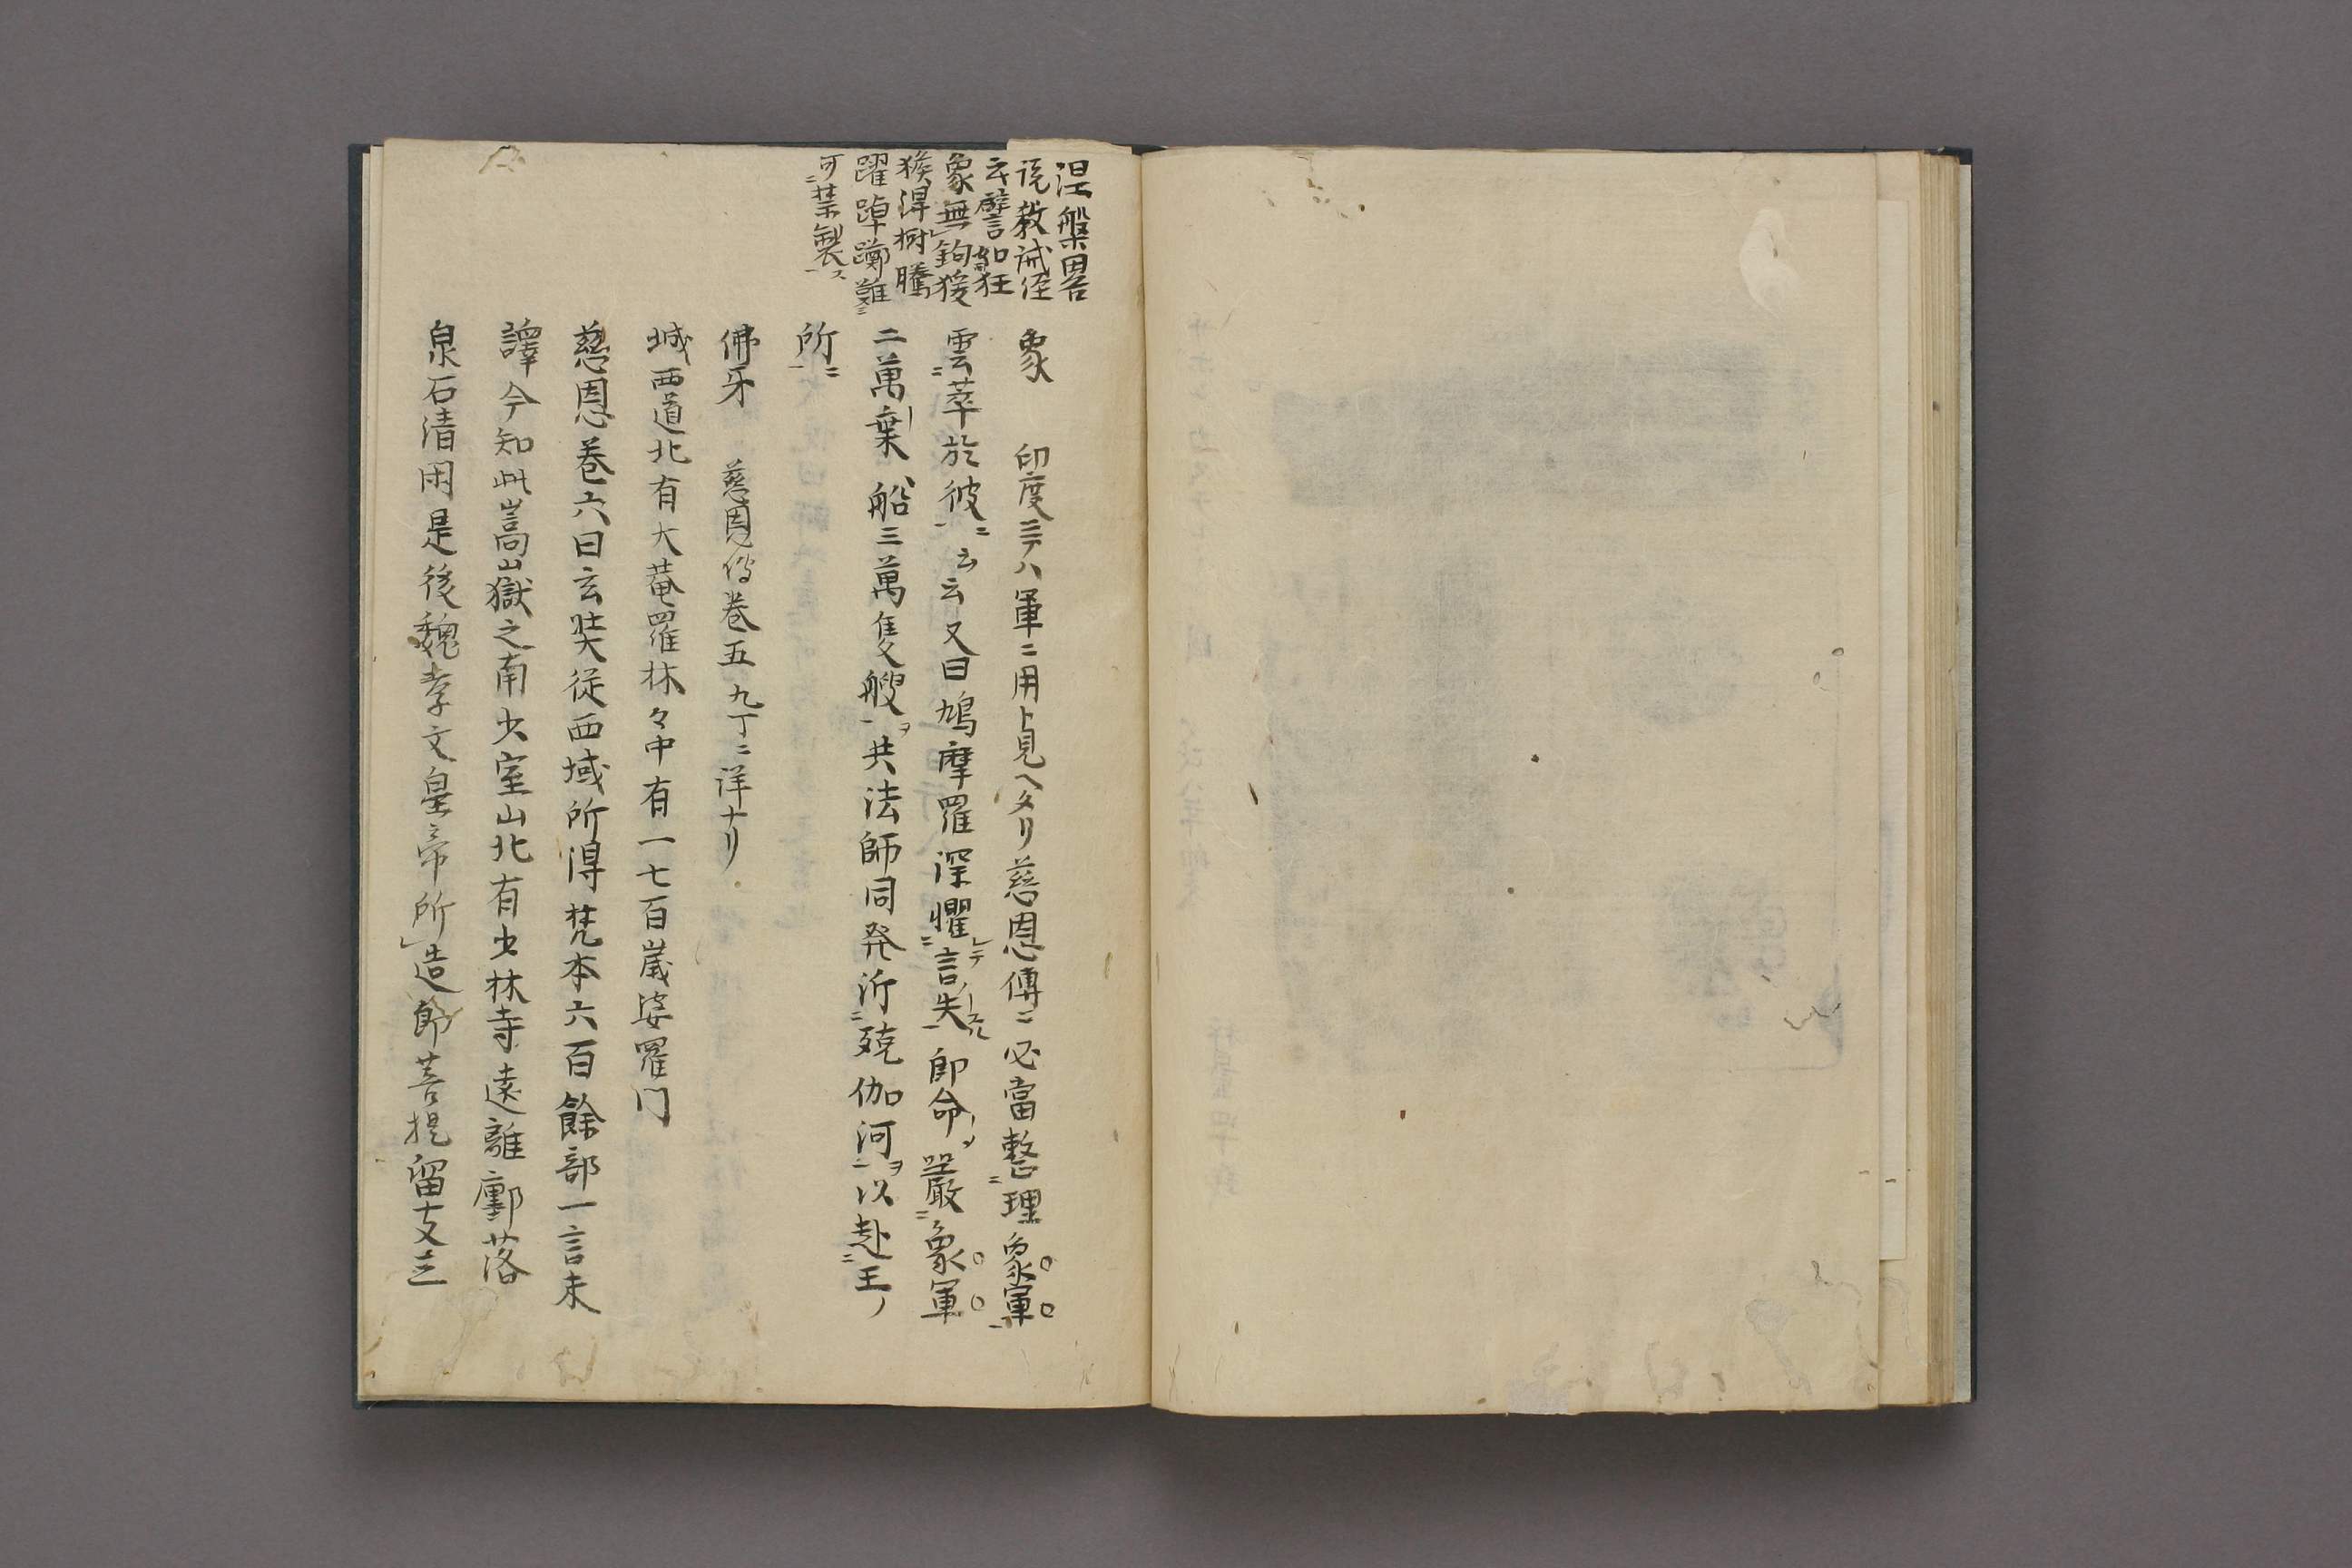 涅槃畧
説教誡経
云譬如狂
象無鉤猨
猴得樹騰
躍踔躑難
可禁製ス
象 印度ニテハ軍ニ用ト見ヘタリ慈恩傳ニ必當整理象軍
雲萃於彼ニ云云又曰鳩摩羅深懼言失即命嚴象軍
二萬乗船三萬隻艘ヲ共法師同発泝殑伽河ヲ以赴王ノ
所ニ
佛牙 慈恩傳巻五九丁ニ洋ナリ
城西道北有大菴羅林々中有一七百嵗婆羅门
慈恩巻六曰玄奘従西域所得梵本六百餘部一言未
譯今知此嵩山嶽之南少室山北有少林寺遠離鄽落
泉石清閑是後魏孝文皇帝所造即菩提留支三